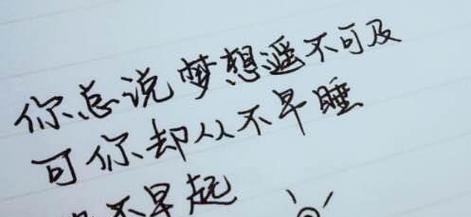 你总说梦想遥不可及
可你却从不早睡
不早起